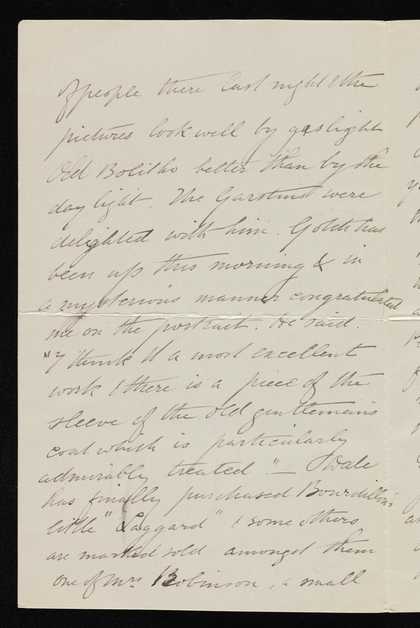 of people there last night & the
pictures look well by gaslight
Old Bolitho better than by the
day light. The Garstins were
delighted with him. Gotch has
been up this morning & in
a mysterious manner congratulated
me on the portrait. He said.
"I think it a most excellent
work & there is a piece of the
sleeve of the old gentleman's
coat which is particularly
admirably treated" —
has finally purchased Bourdillon's
little "Laggard" & some others
are marked sold amongst them
one of Mrs. Robinson, a small